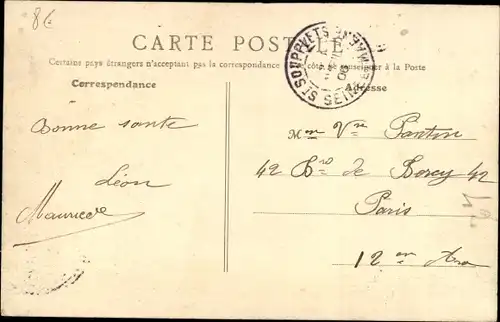 8€
CARTE POSTALE
Certains pays étrangers n'acceptant pas la correspondance de ce côté, se renseigner à la Poste
Correspondance
Adresse
ST SOUPPLETS SEINE & MARNE
08
Bonne sante
Léon
Maurice
Mme Vve Pantin
42 Bd de Bercy 42
Paris
12 em